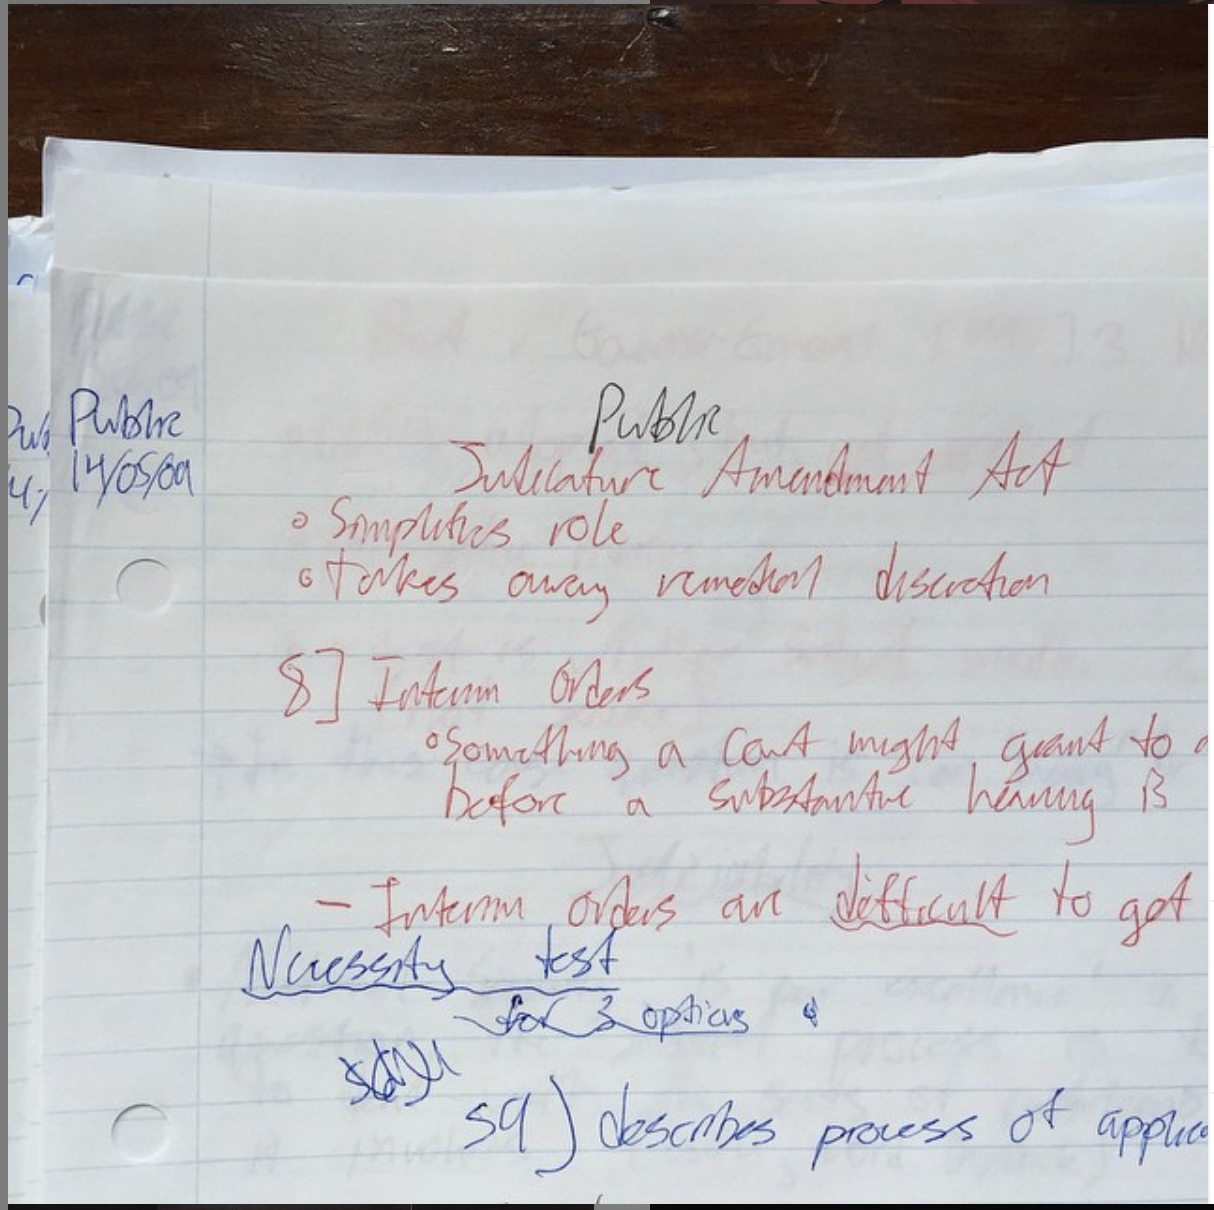 Public
14/05/09
Public
Judicature Amendment Act
Simplifies role
Takes away remedial discretion
8] Interim Orders
Something a Court might grant to
before a substantive hearing is
- Interim orders are difficult to get
Necessity test
for 3 options
s9) describes process of applic